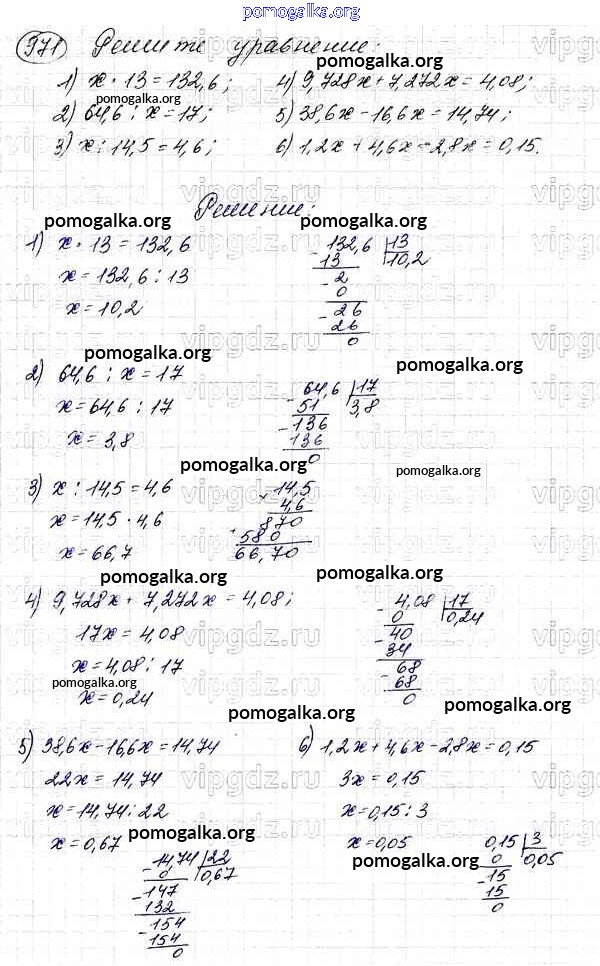 pomogalka.org
971 Решите уравнение:
1) x · 13 = 132,6; 4) 9,728x + 7,272x = 4,08;
pomogalka.org pomogalka.org
2) 64,6 : x = 17; 5) 38,6x - 16,6x = 14,74;
3) x : 14,5 = 4,6; 6) 1,2x + 4,6x - 2,8x = 0,15.
vipgdz.ru vipgdz.ru vipgdz.ru
Решение:
pomogalka.org pomogalka.org
1) x · 13 = 132,6
x = 132,6 : 13
x = 10,2
132,6 | 13
13 10,2
- 2
0
- 26
26
0
pomogalka.org pomogalka.org
2) 64,6 : x = 17
x = 64,6 : 17
x = 3,8
- 64,6 | 17
51 3,8
- 136
136
0
pomogalka.org pomogalka.org
3) x : 14,5 = 4,6
x = 14,5 · 4,6
x = 66,7
14,5
4,6
870
580
66,70
pomogalka.org pomogalka.org
4) 9,728x + 7,272x = 4,08;
17x = 4,08
x = 4,08 : 17
pomogalka.org
x = 0,24
- 4,08 | 17
0 0,24
- 40
34
- 68
68
0
pomogalka.org
5) 38,6x - 16,6x = 14,74
22x = 14,74
x = 14,74 : 22
x = 0,67
pomogalka.org
- 14,74 | 22
0 0,67
- 147
132
- 154
154
0
6) 1,2x + 4,6x - 2,8x = 0,15
3x = 0,15
x = 0,15 : 3
x = 0,05
pomogalka.org
0,15 | 3
0 0,05
- 15
15
0